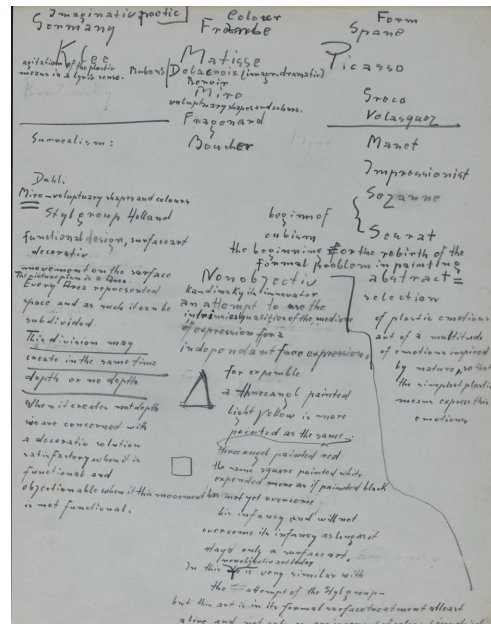 Imaginativ poetic
Germany
Klee
agitation of the plastic
means in a lyric sense.
Surrealism:
Dahli.
Miro – voluptuary shapes and colours
Stylgroup Holland
functional design, surfaceart
decorativ
movement on the surface
The pictureplain is a Area.
Every Area represented
space and as such it can be
subdivided.
This division may
create in the same time
depth or no depth
When it creates not depth
we are concerned with
a decorativ solution
satisfactory when it is
functional and
objectionable when it
is not functional.
Colour
Matisse
Rubens Delacroix (imagin. dramatic)
Renoir
Miro
voluptuary shapes and colours.
Fragonard
Boucher
Form
Spane
Picasso
Greco
Velasquez
Manet
Impressionist
Sezanne
Seurat
begin of
cubism
the beginning for the rebirth of the
formal problem in painting
Nonobjectiv
kandinsky its innovator
an attempt to use the
intrinsic qualities of the medium
of expression for a
independant face expression
for exponble
a threeangl painted
light yellow is more
pointed as the same
threeangel painted red
the same square painted white
expended more as if painted black
this movement has not yet overcome
his infancy and will not
overcome its infancy as long as it
stays only a surface art.
In this it is very similar with
the attempt of the Stylgroup –
but this art is in its formal surface treatment alleast
alive and not only
abstract =
selection
of plastic emotions
out of a multitude
of emotions inspired
by nature so that
the simplest plastic
means express this
emotions